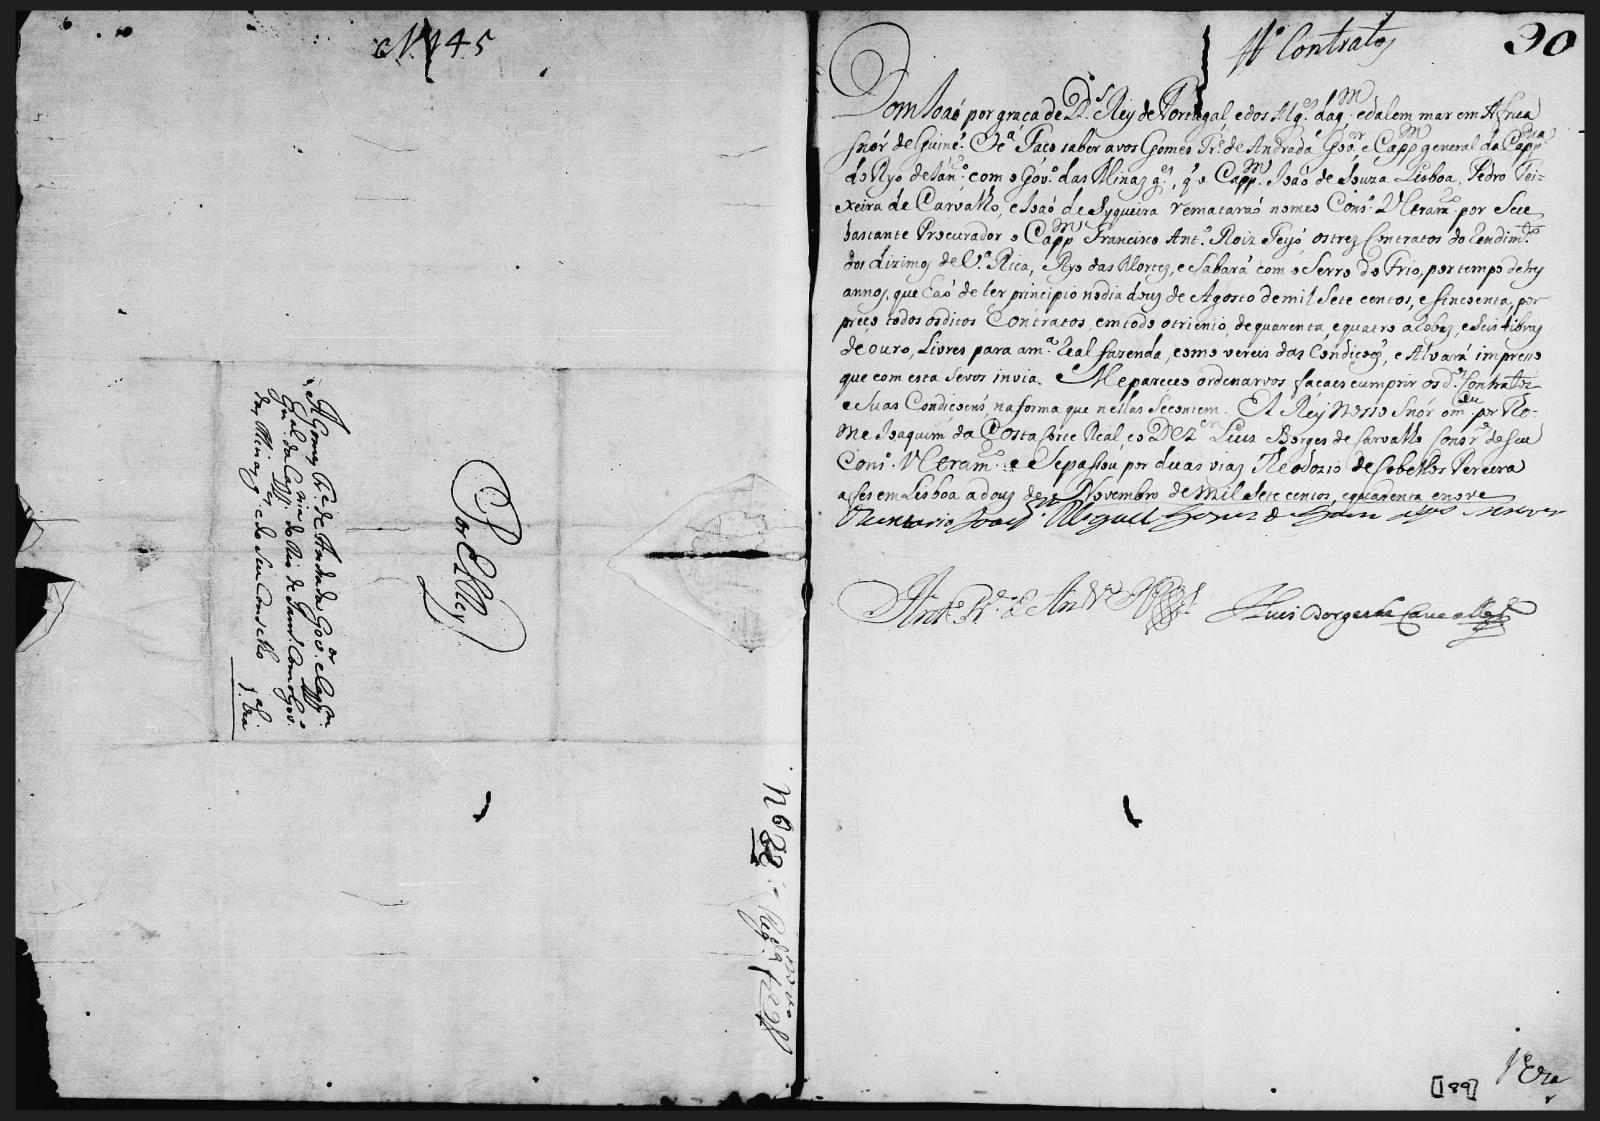 Nº 145
Por ElRey
A Gomes Fr.e de Andrada Gov.or e Capp.m
Gn.al da Capp.nia do Rio de Jan.ro Com o Gov.o
das Minas g.es e do Seu Conselho 1.a via
Nº 22
90
Contratos
Dom Joaõ por graça de D.s Rey de Portugal e dos Alg.es daq.m e dalem mar em Africa
Snõr de Guine. &c.a Faço saber avos Gomes Fr.e de Andrada Gov.or e Capp.m general da Capp.nia
do Ryo de Jan.ro com o Gov.o das Minas g.es, q̃ o Capp.m Joaõ de Souza Lisboa, Pedro Tei-
xeira de Carvalho, e Joaõ de Syqueira rematarão nomeo Cons.o Ultram.o por Seu
bastante Procurador o Capp.m Francisco Ant.o Roiz Feyó os trez Contratos do Rendim.to
dos dizimos de V.a Rica, Ryo das Mortes, e Sabará com o Serro do Frio, por tempo de trez
annos, que haõ de ter principio no dia dous de Agosto de mil Sete centos, e sincoenta, por
preço todos os ditos Contratos, em todo o trienio, de quarenta e quatro arobas, e Seis Libras
de ouro, Livres para a m.a Real fazenda, como vereis das Condiçoẽs, e Alvará impresso
que com esta Se vos invia. Mepareceo ordenarvos façaes cumprir os d.os Contratos
e Suas Condiçoens, na forma que nellas Se contem. El Rey Nosso Snõr o m.dou por Tho-
me Joaquim da Costa Corte Real, e o Dez.or Luis Borges de Carvalho Cons.ros do Seu
Cons.o Ultram.o e Se passou por duas vias Theodozio de Cobellos Pereira
a fes em Lisboa a dous de Novembro de mil Sete centos, e quarenta e nove
O Secretario Joaq.m Miguel Lopes de
Luis Borges de Carvalho
1.a Via
[189]